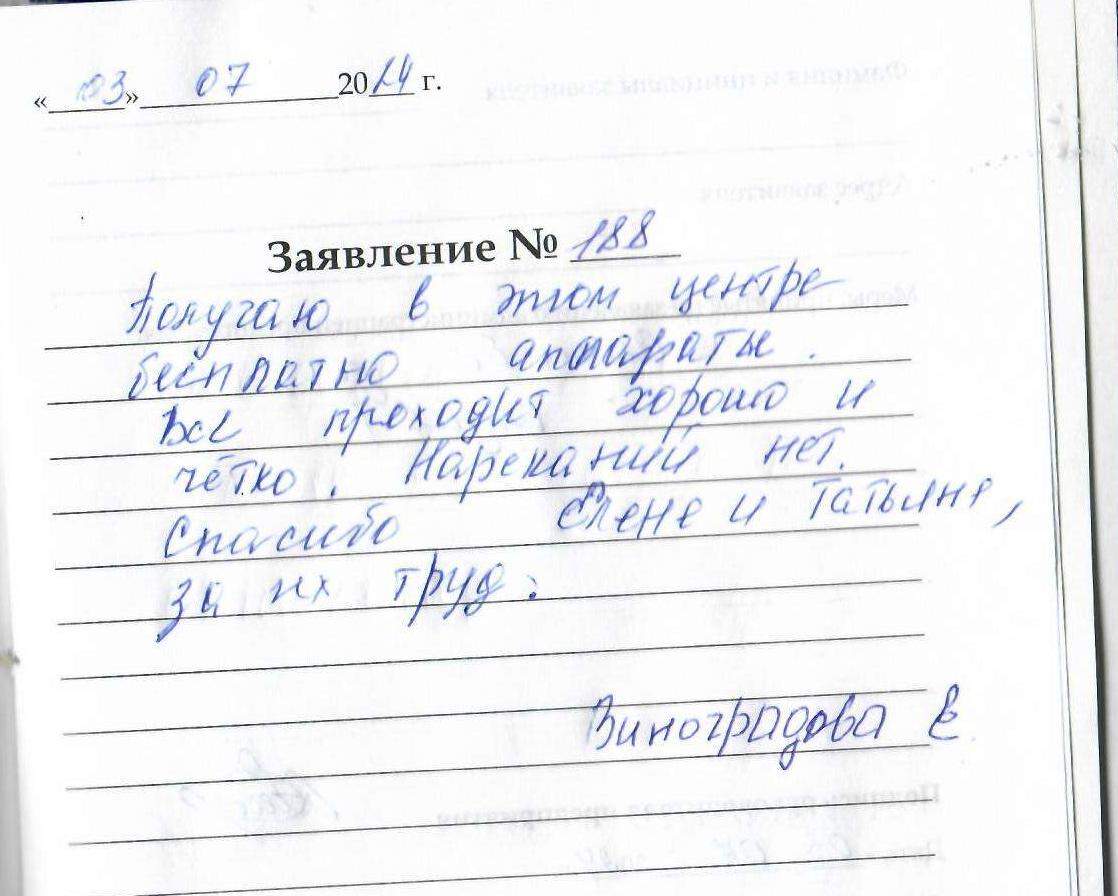 «03» 07 2024 г.
Заявление № 188
Получаю в этом центре
бесплатно аппараты.
Все проходит хорошо и
чётко. Нареканий нет.
Спасибо Елене и Татьяне,
за их труд.
Виноградова Е